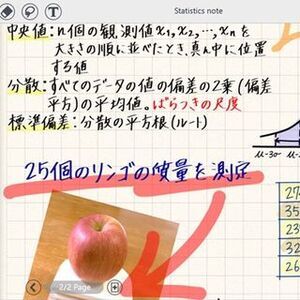 Statistics note
中央値：n個の観測値x₁,x₂,…,xₙを
大きさの順に並べたとき,真ん中に位置
する値
分散：すべてのデータの値の偏差の2乗(偏差
平方)の平均値。ばらつきの尺度
標準偏差：分散の平方根(ルート)
25個のリンゴの質量を測定
μ-3σ μ-2
27
35
23
32
26
2/2 Page